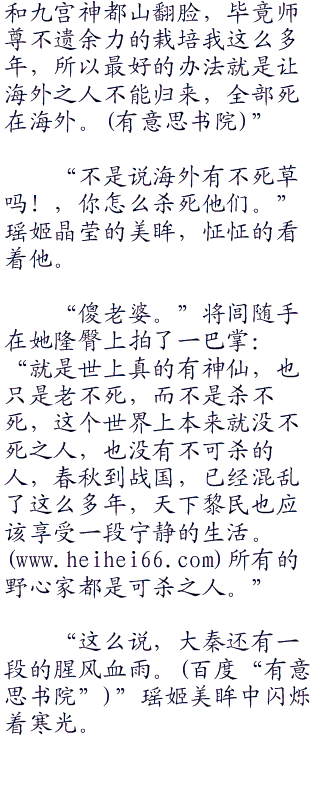 和九宫神都山翻脸，毕竟师
尊不遗余力的栽培我这么多
年，所以最好的办法就是让
海外之人不能归来，全部死
在海外。(有意思书院)”
“不是说海外有不死草
吗！，你怎么杀死他们。”
瑶姬晶莹的美眸，怔怔的看
着他。
“傻老婆。”将闾随手
在她隆臀上拍了一巴掌：
“就是世上真的有神仙，也
只是老不死，而不是杀不
死，这个世界上本来就没不
死之人，也没有不可杀的
人，春秋到战国，已经混乱
了这么多年，天下黎民也应
该享受一段宁静的生活。
(www.heihei66.com)所有的
野心家都是可杀之人。”
“这么说，大秦还有一
段的腥风血雨。(百度“有意
思书院”)”瑶姬美眸中闪烁
着寒光。